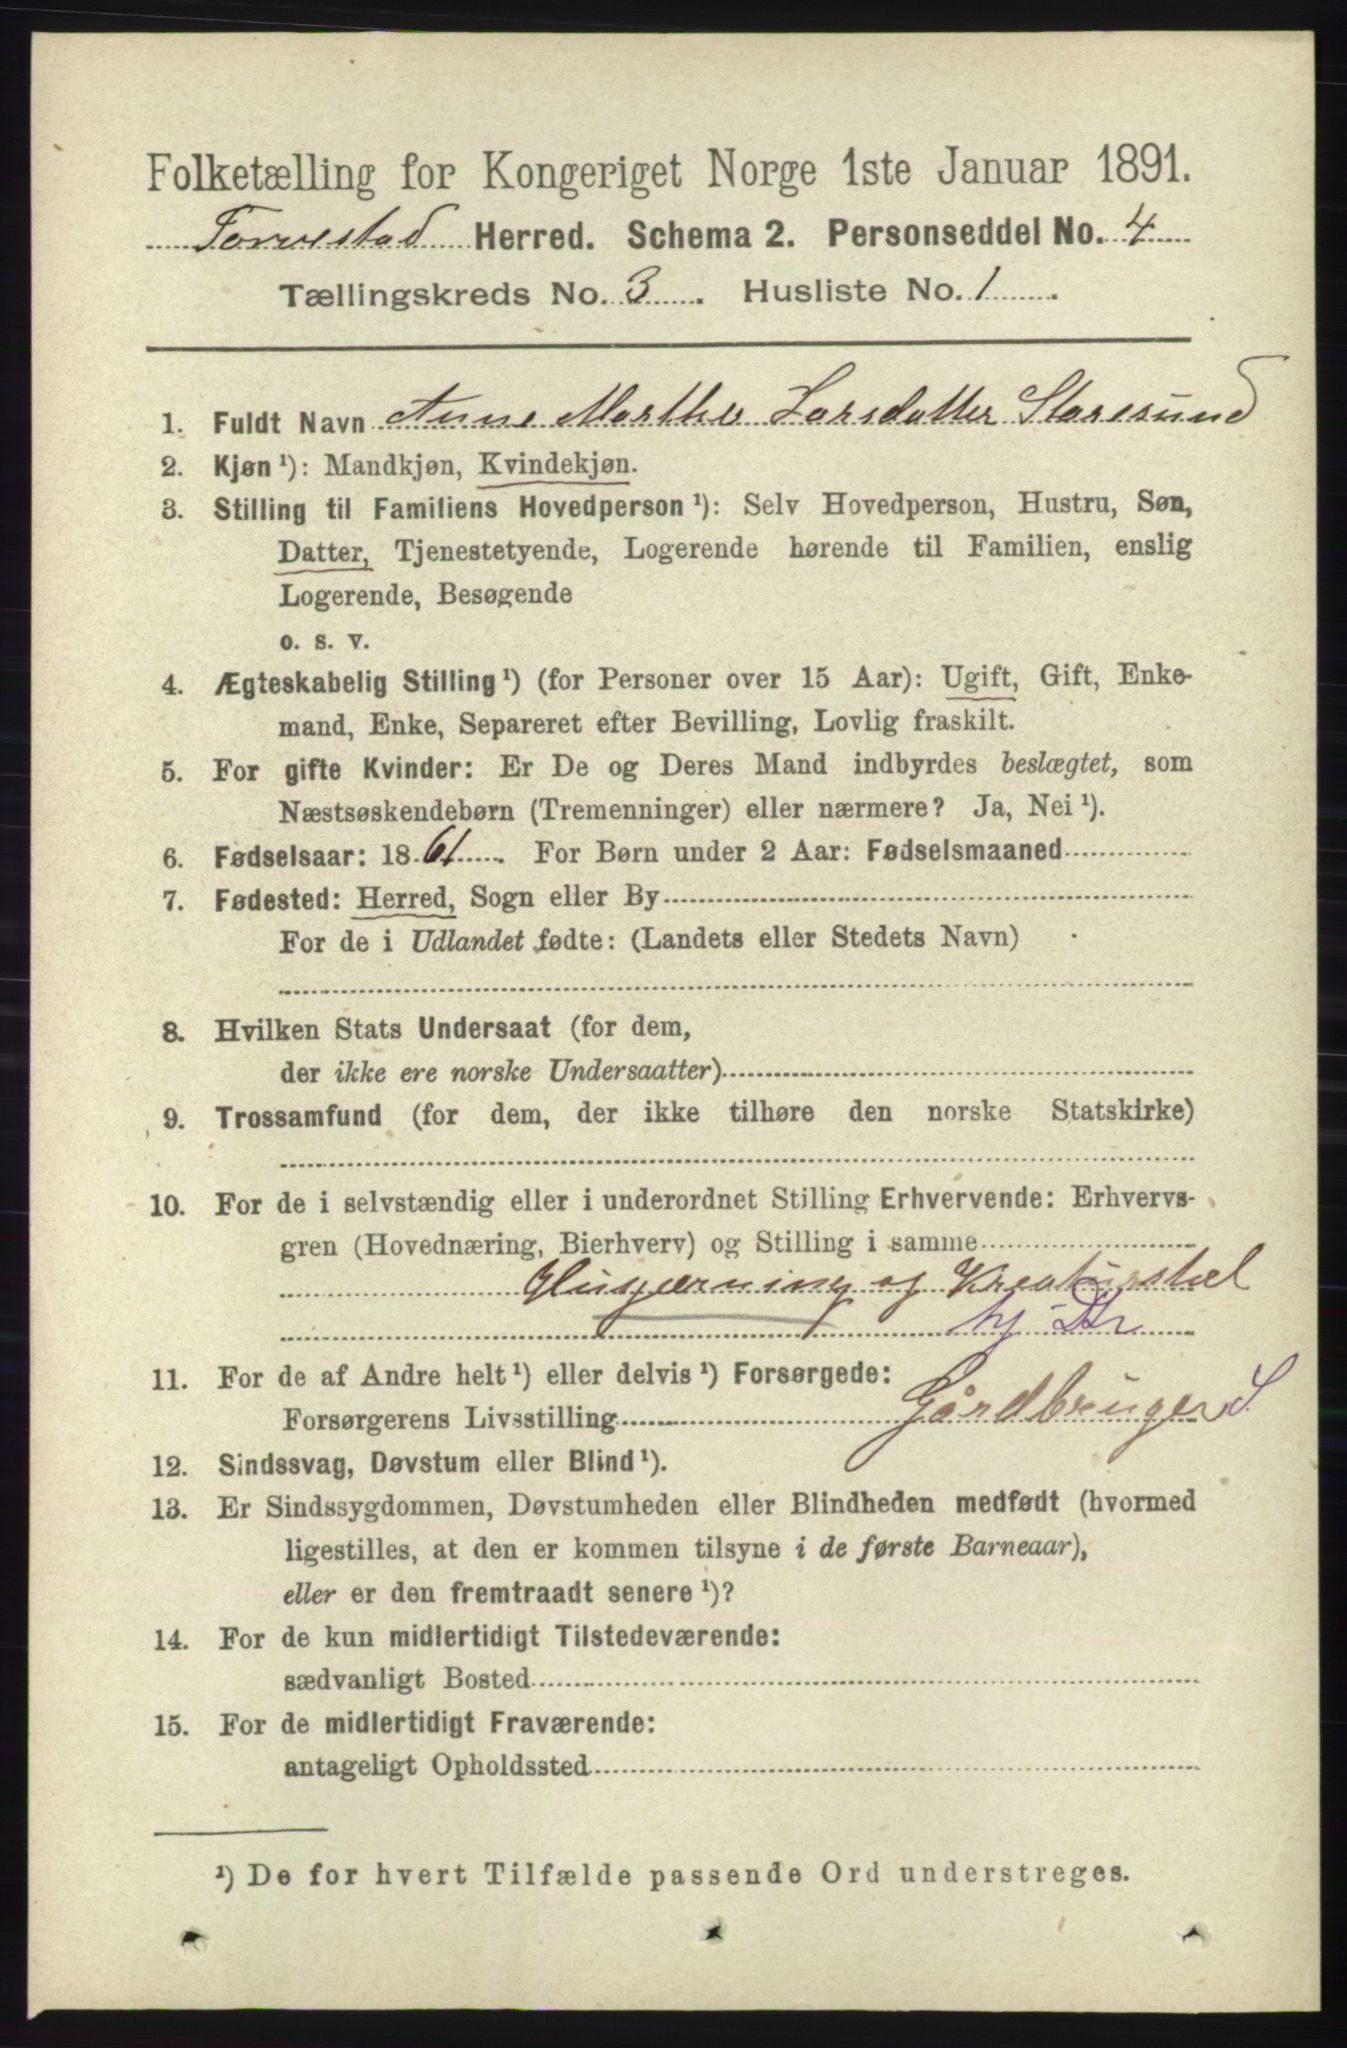 Folketælling for Kongeriget Norge 1ste Januar 1891.
Torvestad Herred. Schema 2. Personseddel No. 4
Tællingskreds No. 3. Husliste No. 1.
1. Fuldt Navn Anne Marthe Larsdatter Storesund
2. Kjøn ¹): Mandkjøn, Kvindekjøn.
3. Stilling til Familiens Hovedperson ¹): Selv Hovedperson, Hustru, Søn,
Datter, Tjenestetyende, Logerende hørende til Familien, enslig
Logerende, Besøgende
o. s. v.
4. Ægteskabelig Stilling ¹) (for Personer over 15 Aar): Ugift, Gift, Enke-
mand, Enke, Separeret efter Bevilling, Lovlig fraskilt.
5. For gifte Kvinder: Er De og Deres Mand indbyrdes beslægtet, som
Næstsøskendebørn (Tremenninger) eller nærmere? Ja, Nei ¹).
6. Fødselsaar: 1861. For Børn under 2 Aar: Fødselsmaaned
7. Fødested: Herred, Sogn eller By
For de i Udlandet fødte: (Landets eller Stedets Navn)
8. Hvilken Stats Undersaat (for dem,
der ikke ere norske Undersaatter)
9. Trossamfund (for dem, der ikke tilhøre den norske Statskirke)
10. For de i selvstændig eller i underordnet Stilling Erhvervende: Erhvervs-
gren (Hovednæring, Bierhverv) og Stilling i samme
Husgjerning og Kreaturstel
hj Dtr
11. For de af Andre helt ¹) eller delvis ¹) Forsørgede:
Forsørgerens Livsstilling Gårdbruger S
12. Sindssvag, Døvstum eller Blind ¹).
13. Er Sindssygdommen, Døvstumheden eller Blindheden medfødt (hvormed
ligestilles, at den er kommen tilsyne i de første Barneaar),
eller er den fremtraadt senere ¹)?
14. For de kun midlertidigt Tilstedeværende:
sædvanligt Bosted
15. For de midlertidigt Fraværende:
antageligt Opholdssted
¹) De for hvert Tilfælde passende Ord understreges.